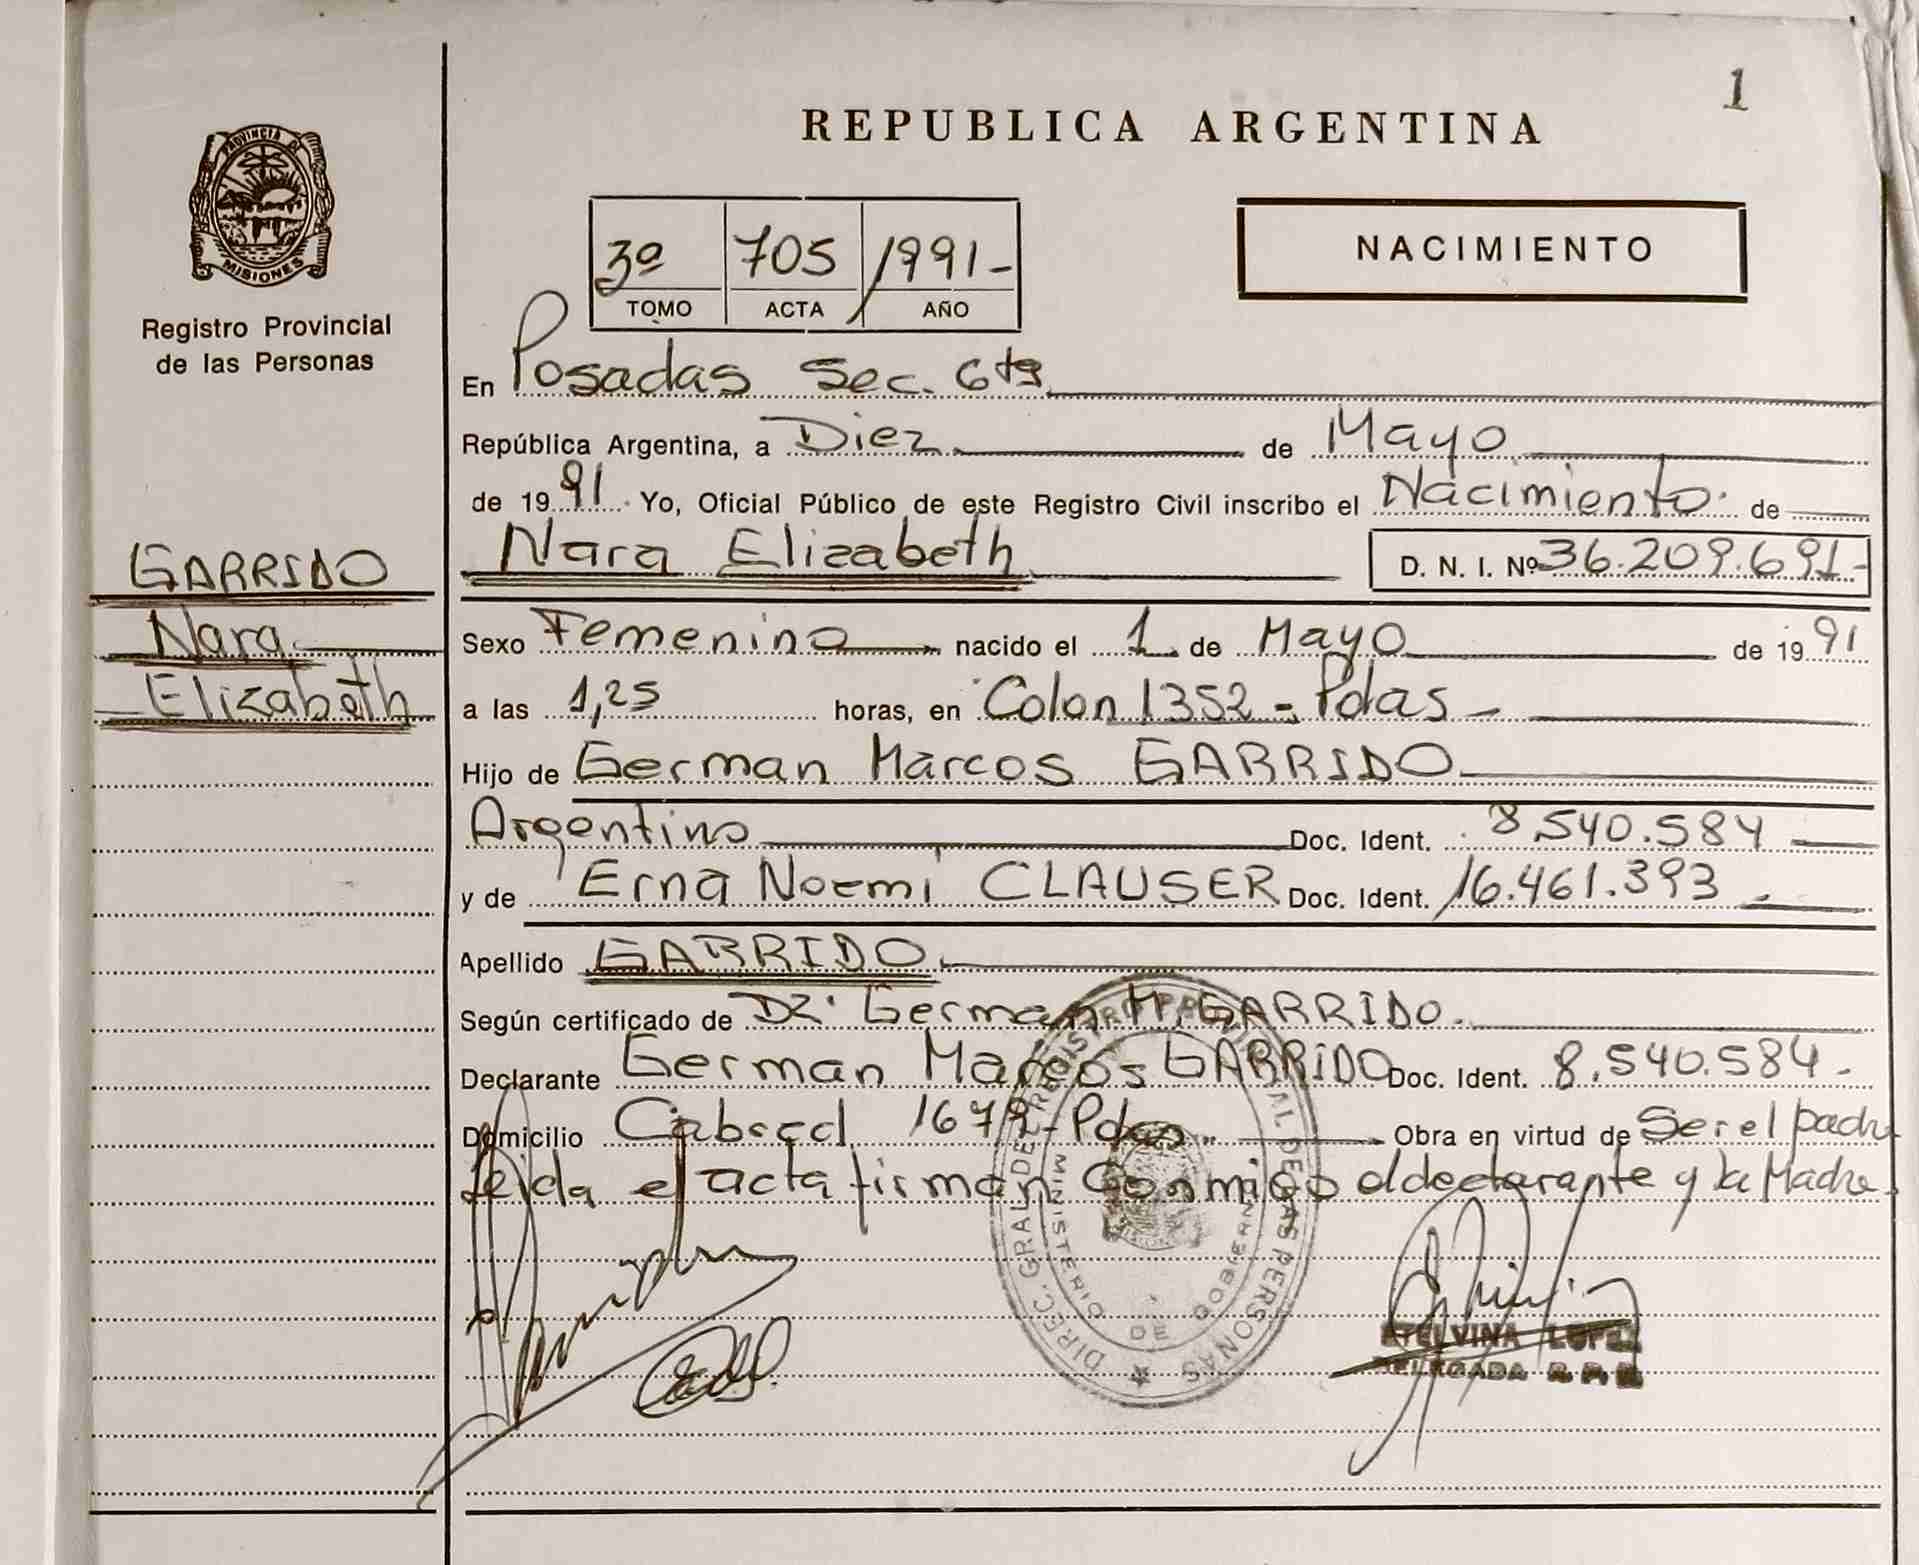 1
REPUBLICA ARGENTINA
PROVINCIA DE
MISIONES
Registro Provincial
de las Personas
3º 705 1991-
TOMO ACTA AÑO
NACIMIENTO
En Posadas Sec. 6ta
República Argentina, a Diez de Mayo
de 1991. Yo, Oficial Público de este Registro Civil inscribo el Nacimiento de
Nara Elizabeth D. N. I. Nº 36.209.691-
GARRIDO
Nara
Elizabeth
Sexo Femenino nacido el 1 de Mayo de 1991
a las 1,25 horas, en Colon 1352 - Pdas -
Hijo de German Marcos GARRIDO
Argentino Doc. Ident. 8.540.584
y de Erna Noemi CLAUSER Doc. Ident. 16.461.393
Apellido GARRIDO
Según certificado de Dr. German M. GARRIDO.
Declarante German Marcos GARRIDO Doc. Ident. 8.540.584-
Domicilio Cabred 1679- Pdas. Obra en virtud de Ser el padre
leida el acta firman Conmigo el declarante y la Madre.
DIREC. GRAL DE REGISTRO PROVINCIAL DE LAS PERSONAS
MINISTERIO DE GOBIERNO
ETELVINA LOPEZ
DELEGADA R. P. P.